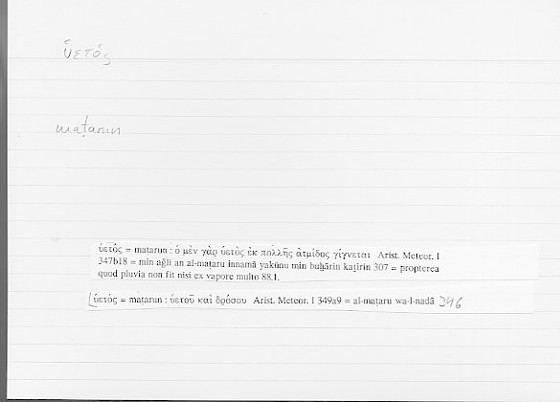 ὑετός
maṭarun
ὑετός = maṭarun : ὁ μὲν γὰρ ὑετὸς ἐκ πολλῆς ἀτμίδος γίγνεται Arist. Meteor. I
347b18 = min aǧli an al-maṭaru innamā yakūnu min buḫārin kaṯīrin 307 = propterea
quod pluvia non fit nisi ex vapore multo 88.1.
ὑετός = maṭarun : ὑετοῦ καὶ δρόσου Arist. Meteor. I 349a9 = al-maṭaru wa-l-nadā 346